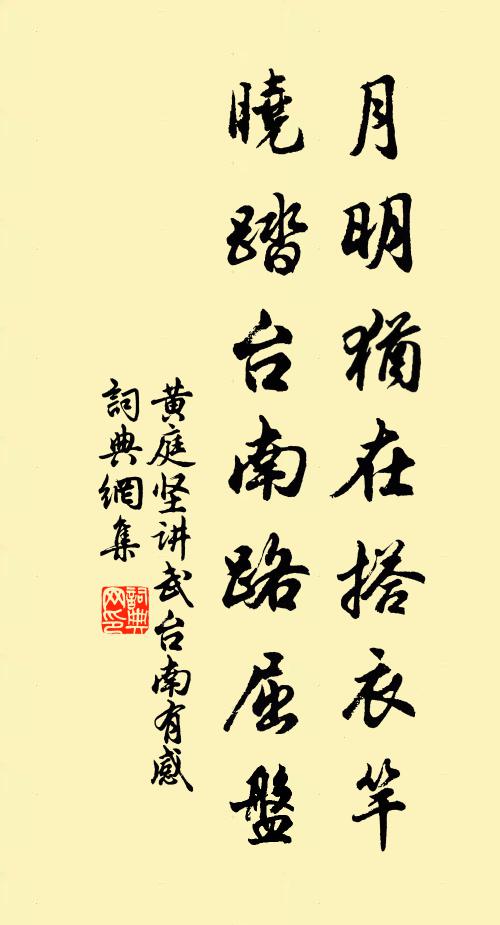 月明猶在搭衣竿
曉踏台南路屈盤
黄庭坚讲武台南有感
詞典網集
詞典網印